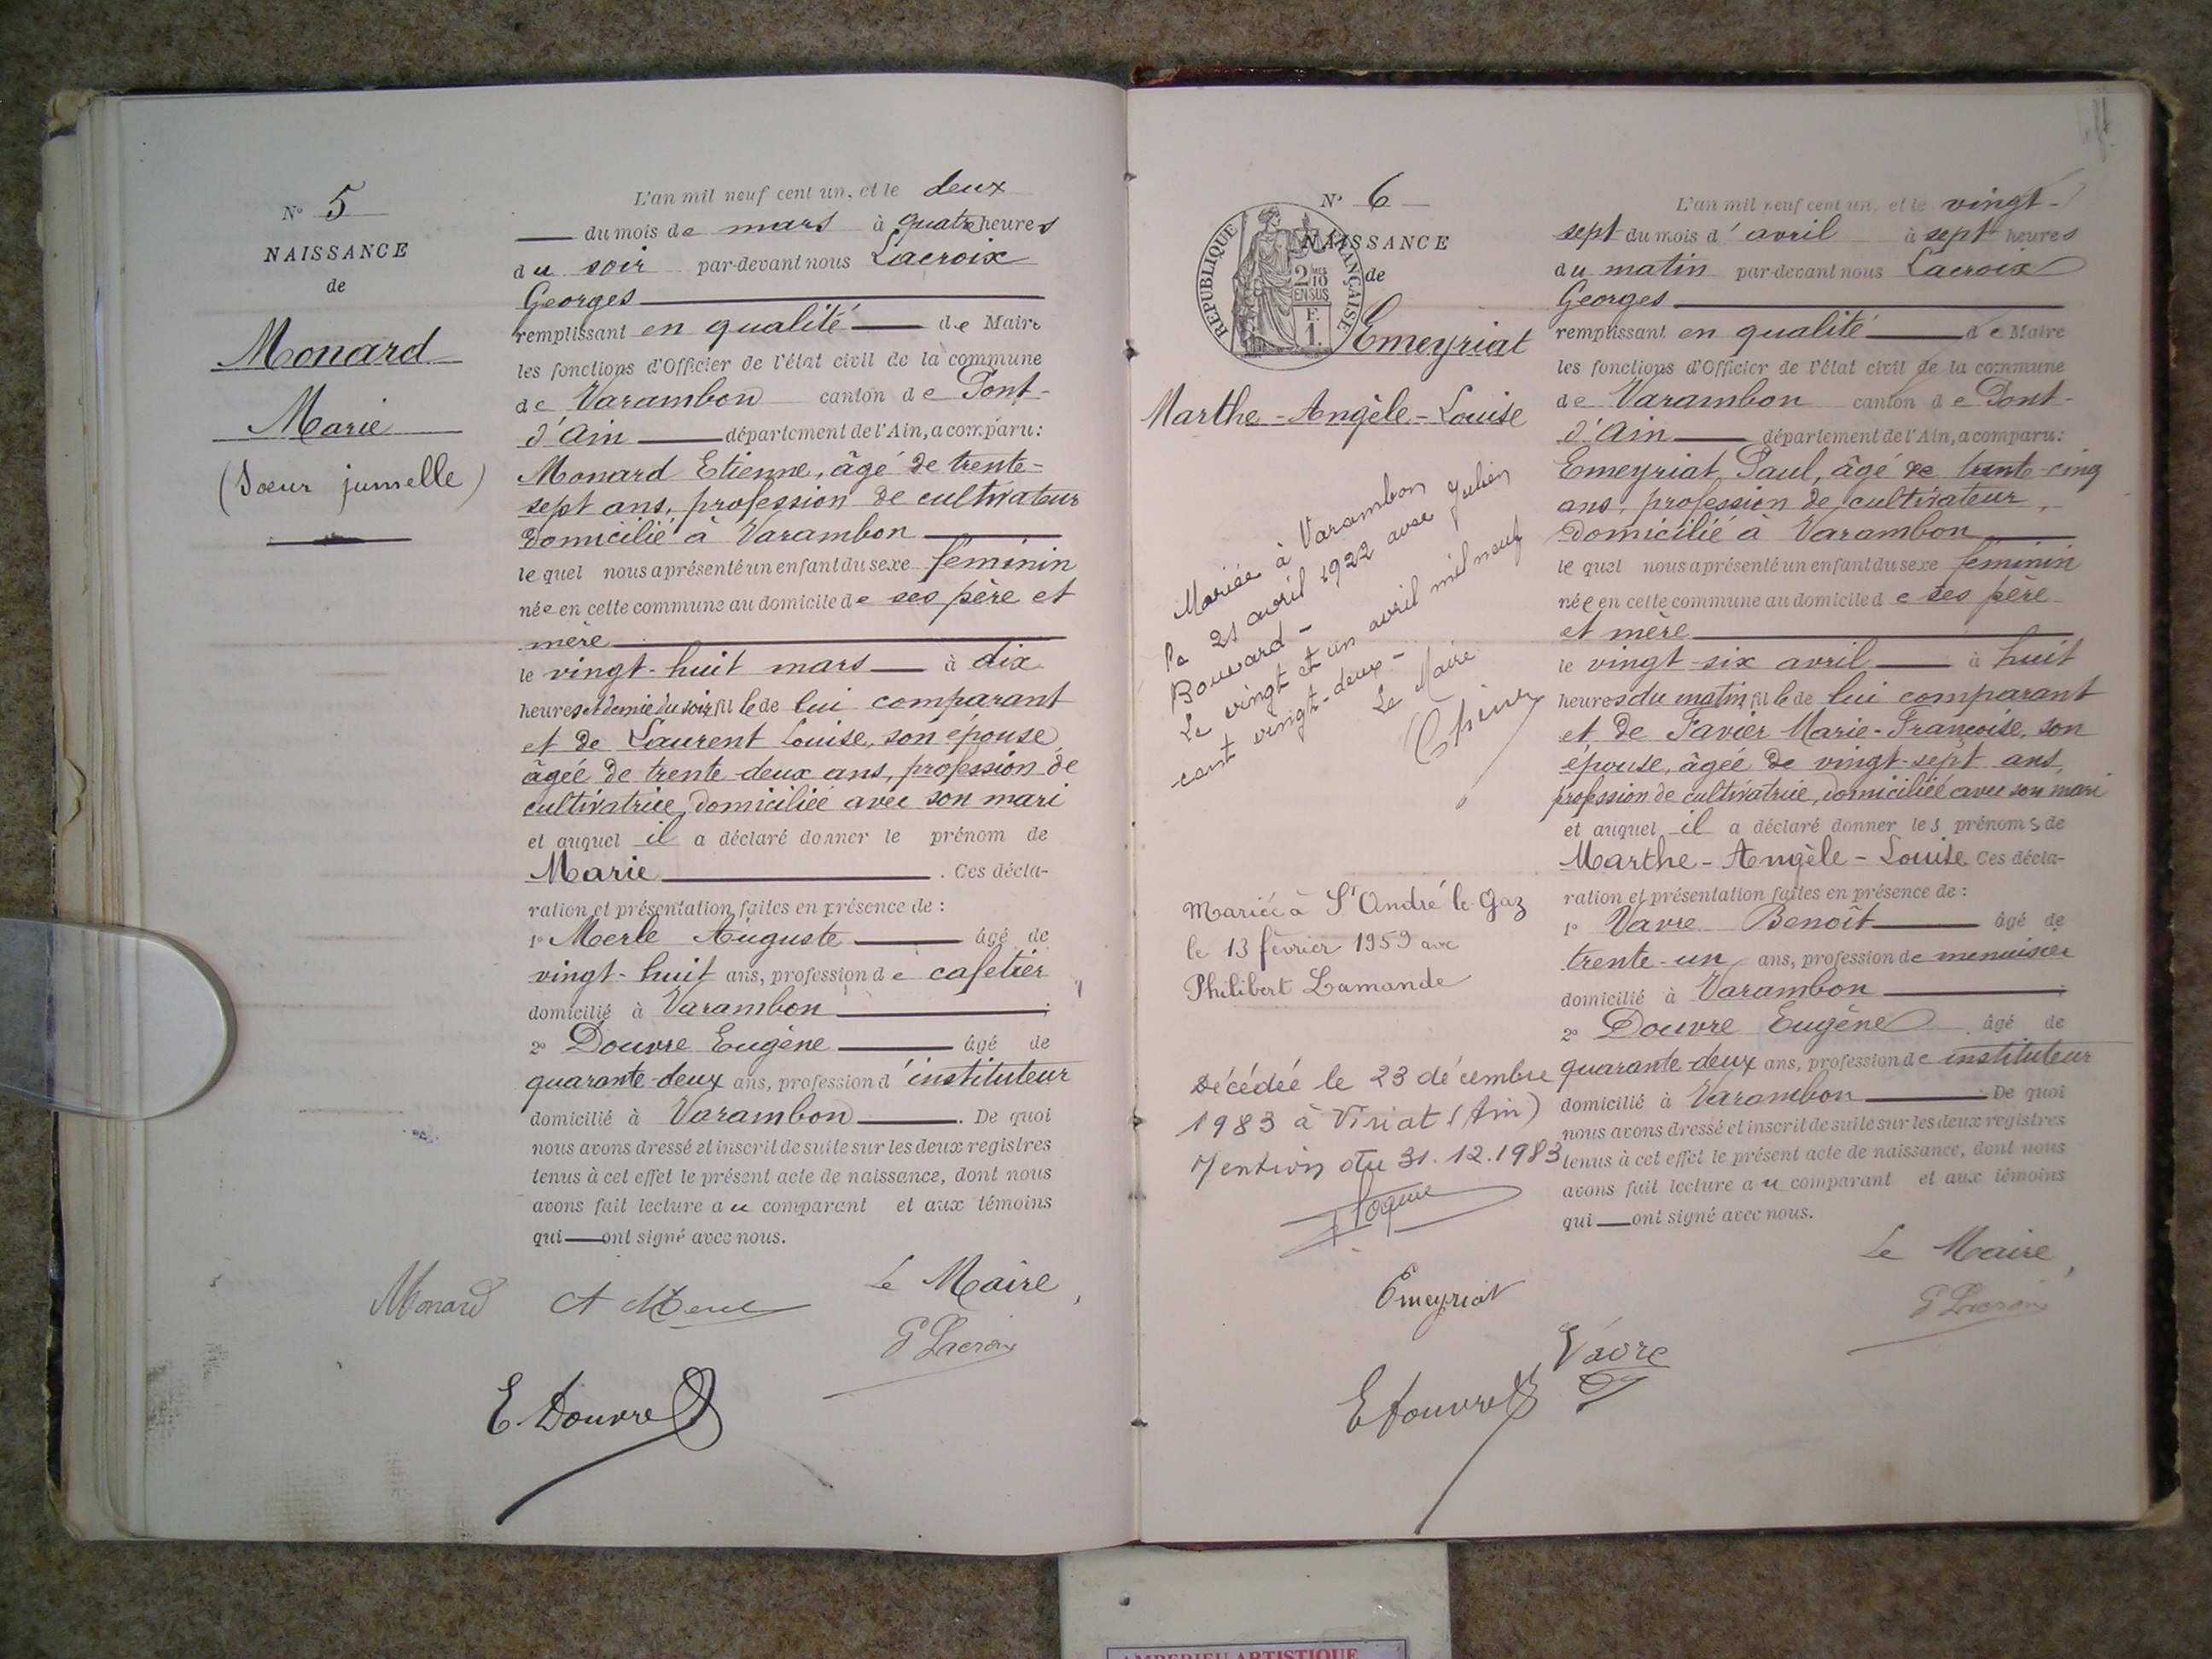 N° 5
NAISSANCE
de
Monard
Marie
(Soeur jumelle)
L'an mil neuf cent un, et le deux
du mois de mars à quatre heures
du soir par-devant nous Lacroix
Georges
remplissant en qualité de Maire
les fonctions d'Officier de l'état civil de la commune
de Varambon canton de Pont-
d'Ain département de l'Ain, a comparu:
Monard Etienne, âgé de trente-
sept ans, profession de cultivateur
domicilié à Varambon
lequel nous a présenté un enfant du sexe féminin
née en cette commune au domicile de ses père et
mère
le vingt-huit mars à dix
heures et demie du soir, fille de lui comparant
et de Laurent Louise, son épouse,
âgée de trente-deux ans, profession de
cultivatrice, domiciliée avec son mari
et auquel il a déclaré donner le prénom de
Marie . Ces décla-
ration et présentation faites en présence de :
1° Merle Auguste âgé de
vingt-huit ans, profession de cafetier
domicilié à Varambon ;
2° Douvre Eugène âgé de
quarante-deux ans, profession d'instituteur
domicilié à Varambon . De quoi
nous avons dressé et inscrit de suite sur les deux registres
tenus à cet effet le présent acte de naissance, dont nous
avons fait lecture au comparant et aux témoins
qui ont signé avec nous.
Le Maire,
Monard A Merle
G Lacroix
E. Douvre
N° 6
NAISSANCE
de
REPUBLIQUE FRANÇAISE
2 10
EN SUS
F.
1.
Emeyriat
Marthe-Angèle-Louise
Mariée à Varambon
le 21 avril 1922 avec Julien
Bouvard -
Le vingt et un avril mil neuf
cent vingt-deux -
Le Maire
Mariée à St André le Gaz
le 13 février 1959 avec
Philibert Lamande
Décédée le 23 décembre
1983 à Viriat (Ain)
Mention du 31.12.1983
L'an mil neuf cent un, et le vingt-
sept du mois d'avril à sept heures
du matin par-devant nous Lacroix
Georges
remplissant en qualité de Maire
les fonctions d'Officier de l'état civil de la commune
de Varambon canton de Pont-
d'Ain département de l'Ain, a comparu:
Emeyriat Paul, âgé de trente-cinq
ans, profession de cultivateur,
domicilié à Varambon
lequel nous a présenté un enfant du sexe féminin
née en cette commune au domicile de ses père
et mère
le vingt-six avril à huit
heures du matin, fille de lui comparant
et de Favier Marie-Françoise, son
épouse, âgée de vingt-sept ans,
profession de cultivatrice, domiciliée avec son mari
et auquel il a déclaré donner les prénoms de
Marthe-Angèle-Louise. Ces décla-
ration et présentation faites en présence de :
1° Vavre Benoît âgé de
trente-un ans, profession de menuisier
domicilié à Varambon ;
2° Douvre Eugène âgé de
quarante-deux ans, profession de instituteur
domicilié à Varambon . De quoi
nous avons dressé et inscrit de suite sur les deux registres
tenus à cet effet le présent acte de naissance, dont nous
avons fait lecture au comparant et aux témoins
qui ont signé avec nous.
Le Maire,
Emeyriat
G Lacroix
Vavre
E Douvre
AMBERIEU ARTISTIQUE